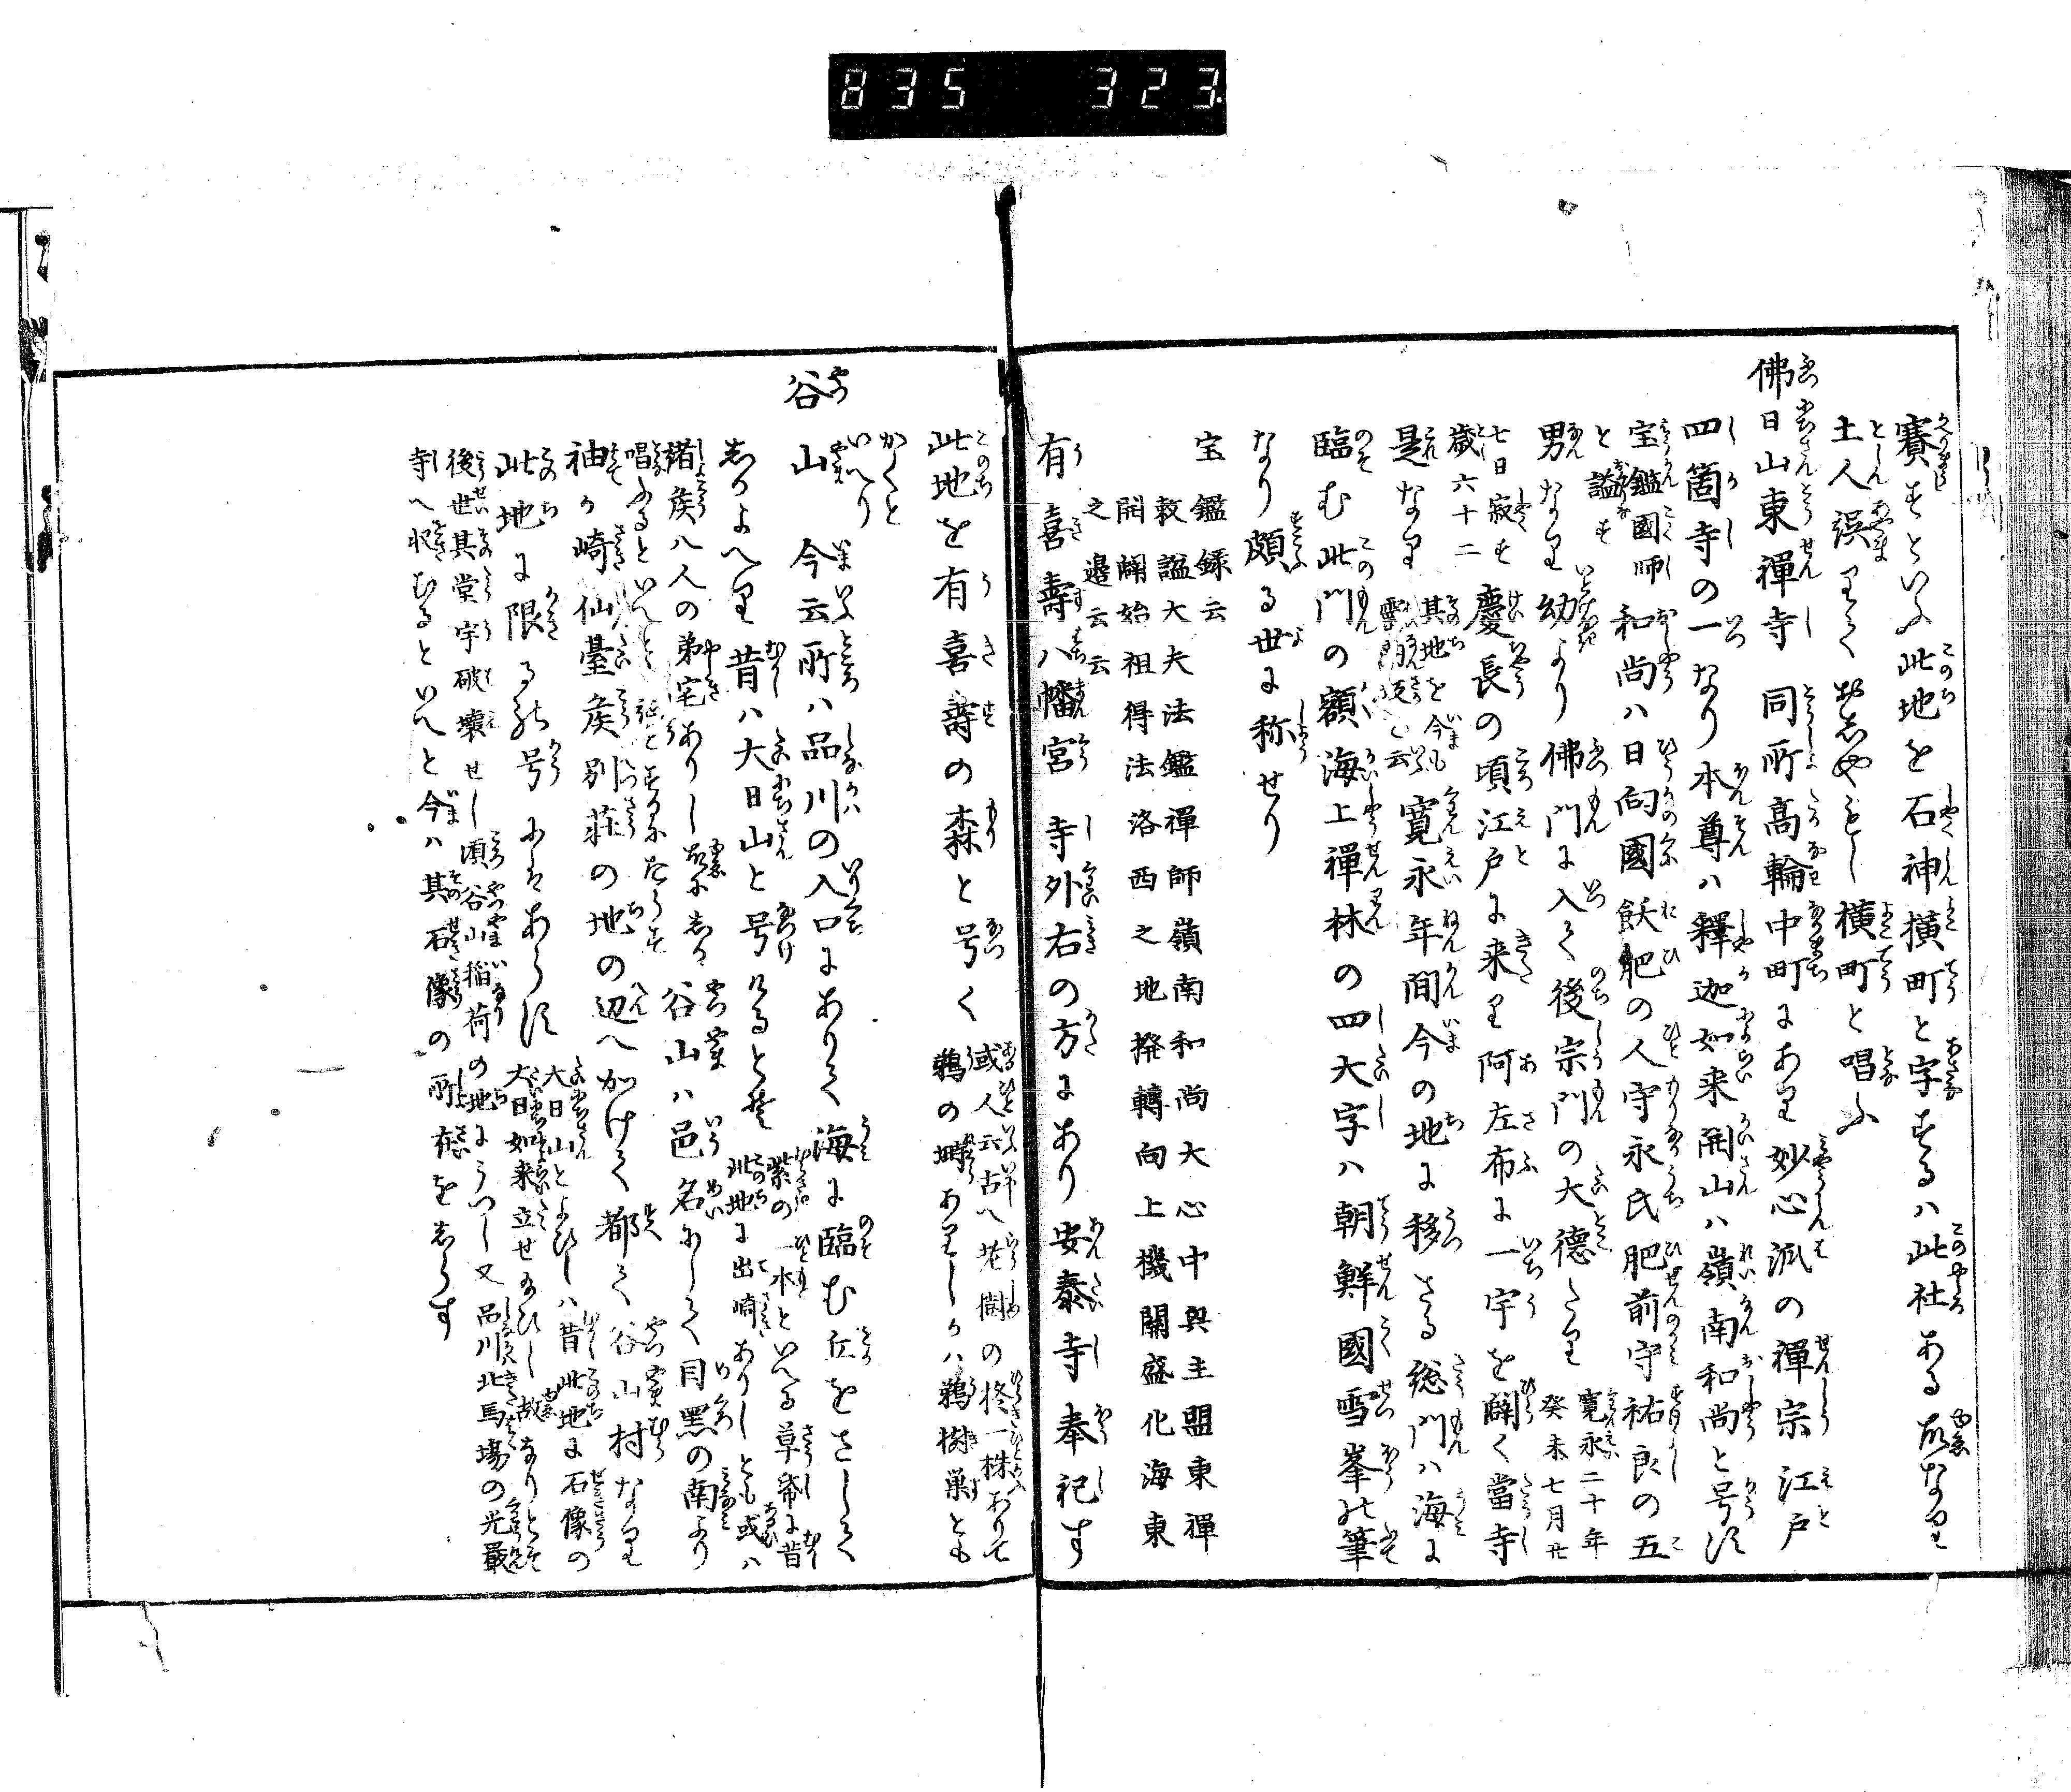 835 323.
賽すといふ此地を石神横町と字するハ此社ある故なり
土人誤りておしやもし横町と唱ふ
佛日山東禪寺 同所高輪中町にあり妙心派の禪宗江戸
四箇寺の一なり本尊ハ釋迦如来開山ハ嶺南和尚と号す
宝鑑國師
と謚す
和尚ハ日向國飫肥の人守永氏肥前守祐良の五
男なり幼より佛門に入て後宗門の大徳たり
寛永二十年
癸未七月廿
七日寂す
歳六十二
慶長の頃江戸に来り阿左布に一宇を闢く當寺
是なり
其地を今も
霊南坂と云
寛永年間今の地に移さる総門ハ海に
臨む此門の額海上禪林の四大字ハ朝鮮國雪峯の筆
なり頗る世に称せり
宝鑑録云
敕謚大夫法鑑禪師嶺南和尚大心中興主盟東禪
開闢始祖得法洛西之地撥轉向上機關盛化海東
之邊云云
有喜壽八幡宮 寺外右の方にあり安泰寺奉祀す
此地を有喜壽の森と号く
或人云古へ老樹の柊一株ありて
鵜の塒ありしかハ鵜樹巣とも
かくと
いへり
谷山 今云所ハ品川の入口にありて海に臨む丘をさして
しかよへり昔ハ大日山と号けるとそ
紫の一本といへる草帋に昔
此地に出崎ありしとも或ハ
諸侯八人の第宅ありし故にしか
唱ふるといへとも証とするにたらす
谷山ハ邑名にして目黒の南より
袖か崎仙臺侯別荘の地の辺へかけて都て谷山村なり
此地に限る号にはあらす
大日山とよひしハ昔此地に石像の
大日如来立せ給ひし故なりとそ
後世其堂宇破壊せし頃谷山稲荷の地にうつし又品川北馬場の光嚴
寺へ収むるといへと今ハ其石像の所在をしらす